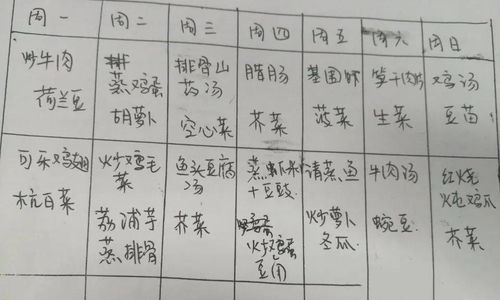 周一 周二 周三 周四 周五 周六 周日
炒牛肉
荷兰豆
蒸鸡蛋
胡萝卜
排骨山
药汤
空心菜
腊肠
芥菜
基围虾
菠菜
笋干肉片
生菜
鸡汤
豆苗
可乐鸡翅
杭白菜
炒鸡毛
菜
荔浦芋
蒸排骨
鱼头豆腐
汤
芥菜
蒸虾米
+豆豉
炒鸡蛋
请蒸鱼
炒萝卜
冬瓜
牛肉汤
豌豆
红烧
炖鸡爪
芥菜